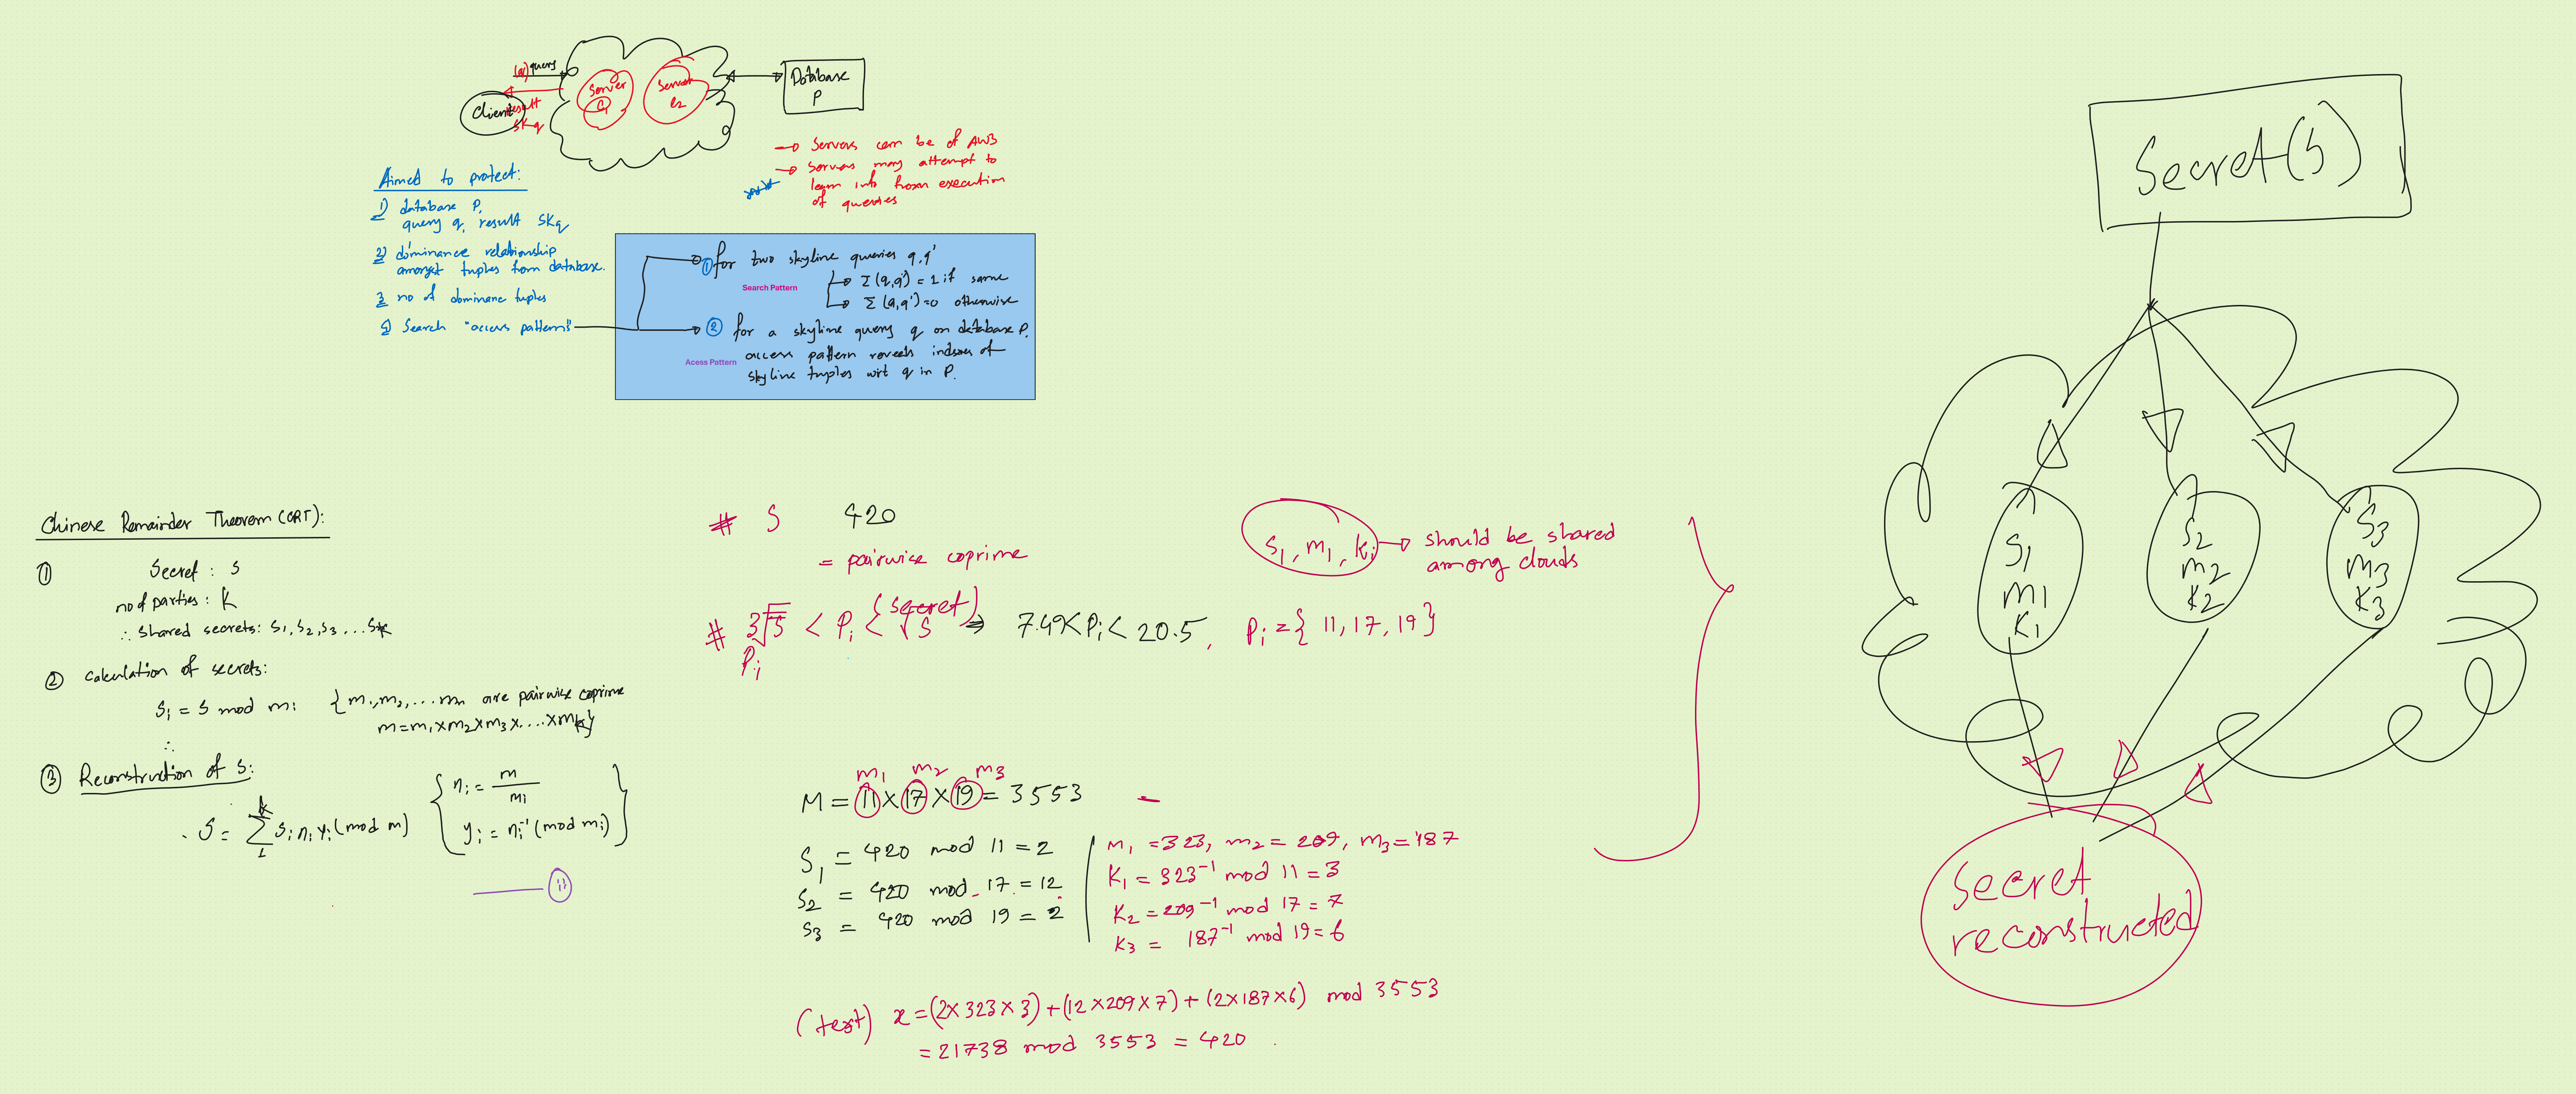 (q) query
Client
result
SKq
Server
C1
Server
C2
Database
P
→ Servers can be of AWS
→ Servers may attempt to
learn info from execution
of queries
Aimed to protect:
1) database P,
query q, result SKq
2) dominance relationship
amongst tuples from database.
3 no of dominance tuples
4) Search "access pattern"
① for two skyline queries q, q'
Search Pattern
→ Σ(q,q') = 1 if same
→ Σ(q,q') = 0 otherwise
② for a skyline query q on database P.
Acess Pattern
access pattern reveals indexes of
skyline tuples wrt q in P.
Chinese Remainder Theorem (CRT):
① Secret : s
no of parties : K
∴ shared secrets: s1, s2, s3 ... sk
② calculation of secrets:
si = s mod mi {m1, m2, ... mn are pairwise coprime
m = m1 x m2 x m3 x .... x mk}
∴
③ Reconstruction of s:
S = Σ si ni yi (mod m)
k
1
{ ni = m/mi
yi = ni⁻¹ (mod mi) }
# S 420
= pairwise coprime
# 3√S < Pi < √S (secret) ⇒ 7.49 < Pi < 20.5, Pi = { 11, 17, 19 }
Pi
s1, m1, ki → should be shared
among clouds
m1 m2 m3
M = 11 × 17 × 19 = 3553
S1 = 420 mod 11 = 2
S2 = 420 mod 17 = 12
S3 = 420 mod 19 = 2
m1 = 323, m2 = 209, m3 = 187
K1 = 323⁻¹ mod 11 = 3
K2 = 209⁻¹ mod 17 = 7
K3 = 187⁻¹ mod 19 = 6
(test) x = (2 × 323 × 3) + (12 × 209 × 7) + (2 × 187 × 6) mod 3553
= 21738 mod 3553 = 420
Secret (S)
S1
m1
K1
S2
m2
K2
S3
m3
K3
Secret
reconstructed